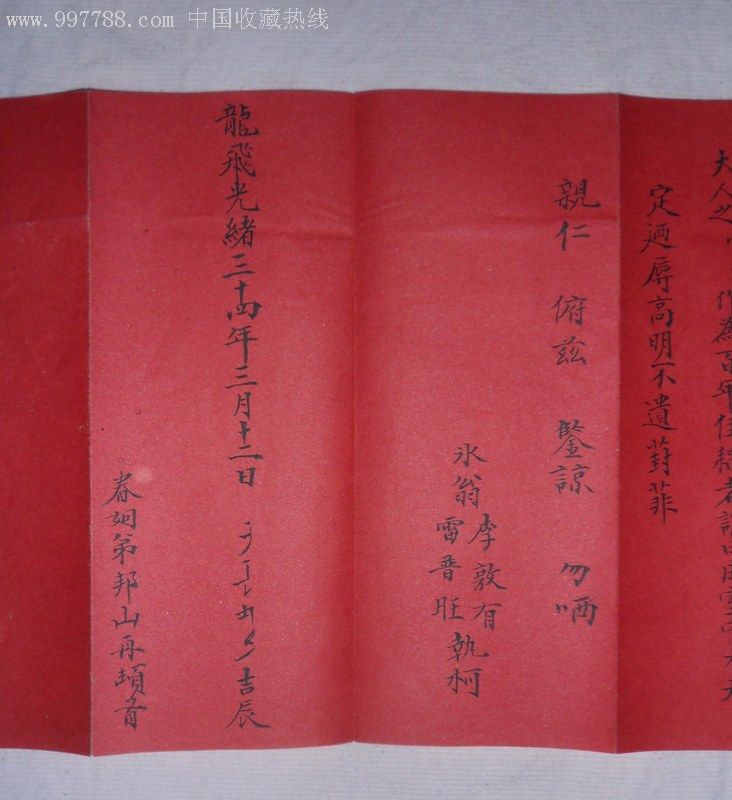 www.997788.com 中国收藏热线
大人之 作為百年佳耦者詎
定迺辱高明不遺葑菲
親仁 俯兹 鑒諒 勿哂
冰翁 李敦有 雷普旺 執柯
龍飛光緒三十四年三月十二日 吉辰
眷姻弟邦山再頓首